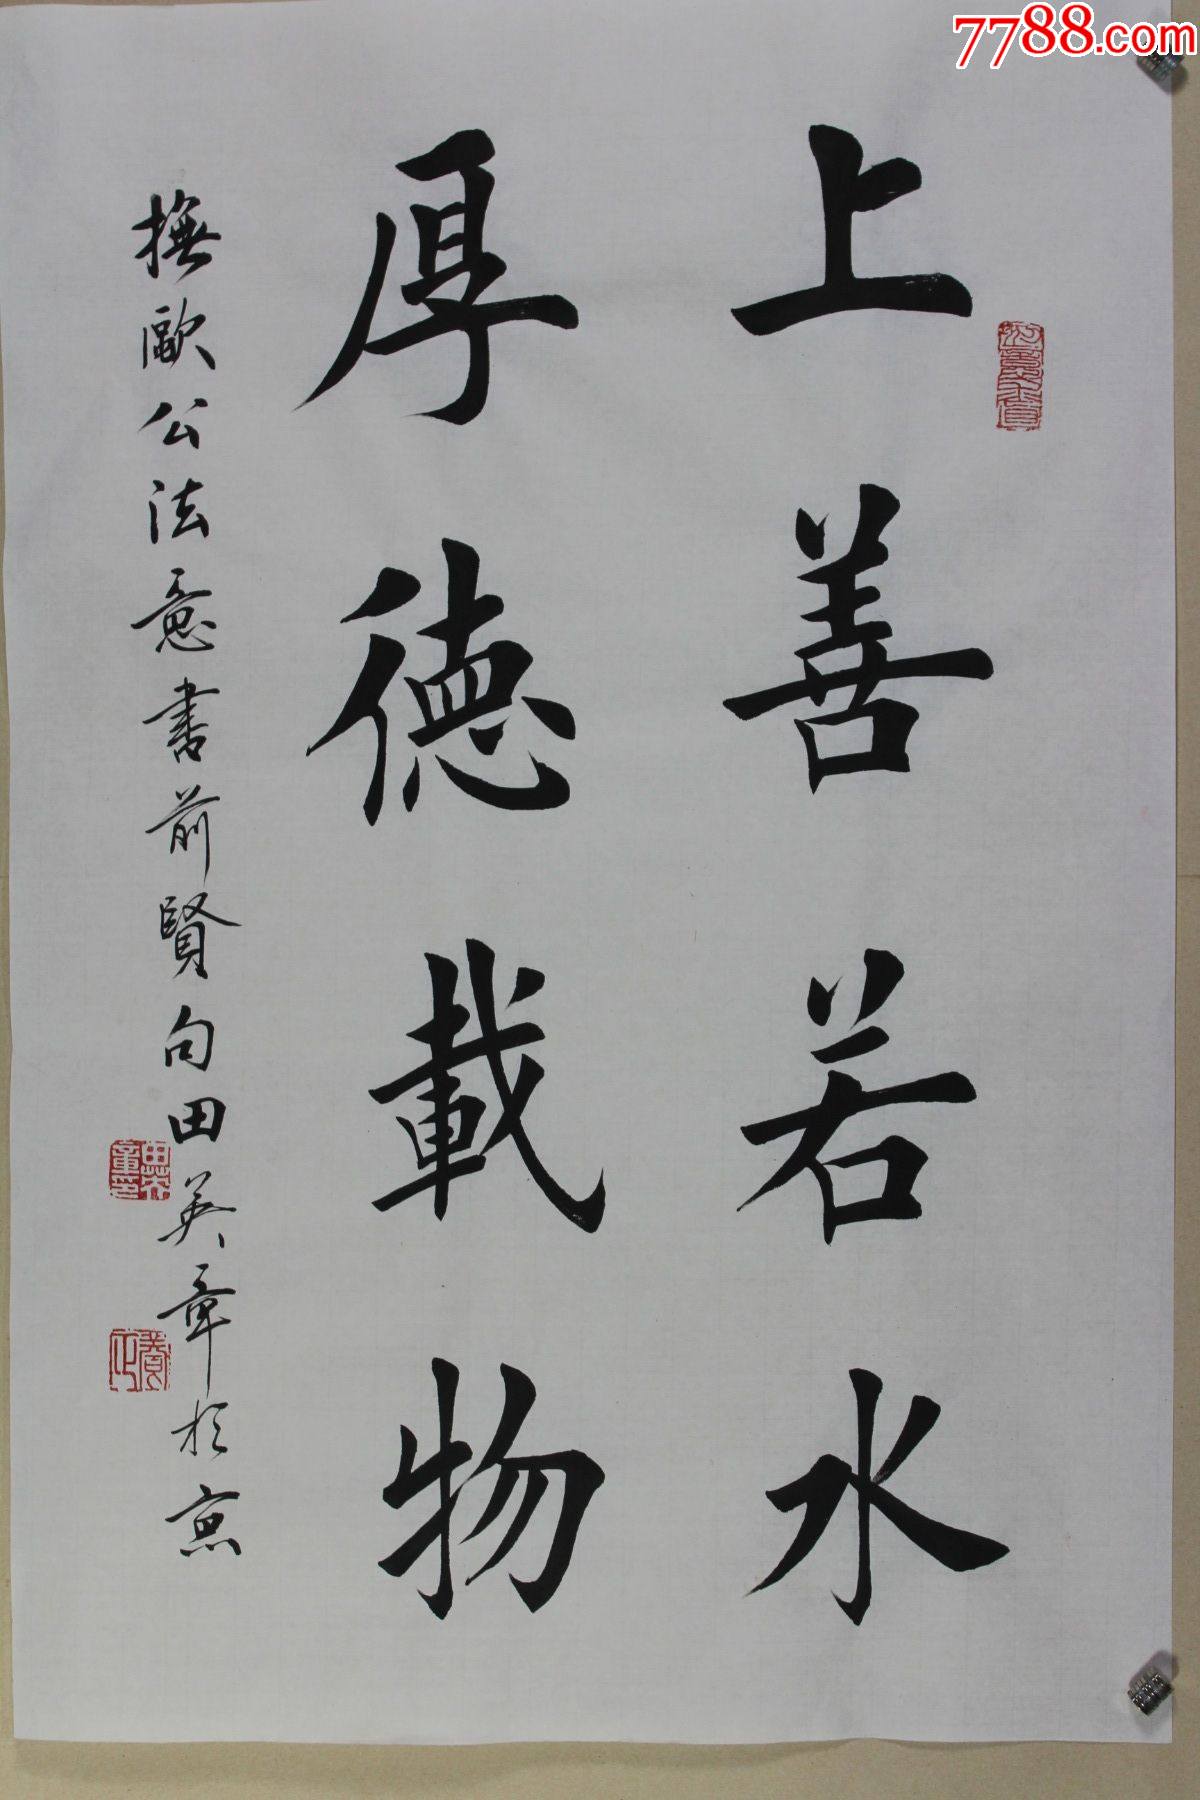 7788.com
上善若水
厚德載物
撫歐公法意書前賢句田英章於京